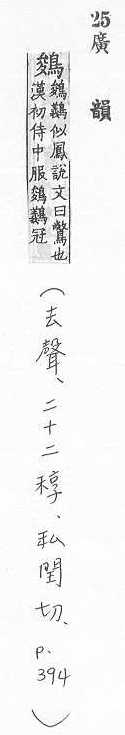 25 廣韻
鵔 鵔鸃似鳳說文曰鷩也
漢初侍中服鵔鸃冠
(去聲、二十二稕、私閏切、p.394)